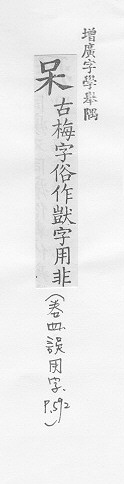 增廣字學舉隅
呆古梅字俗作獃字用非
(卷四誤用字P.592)